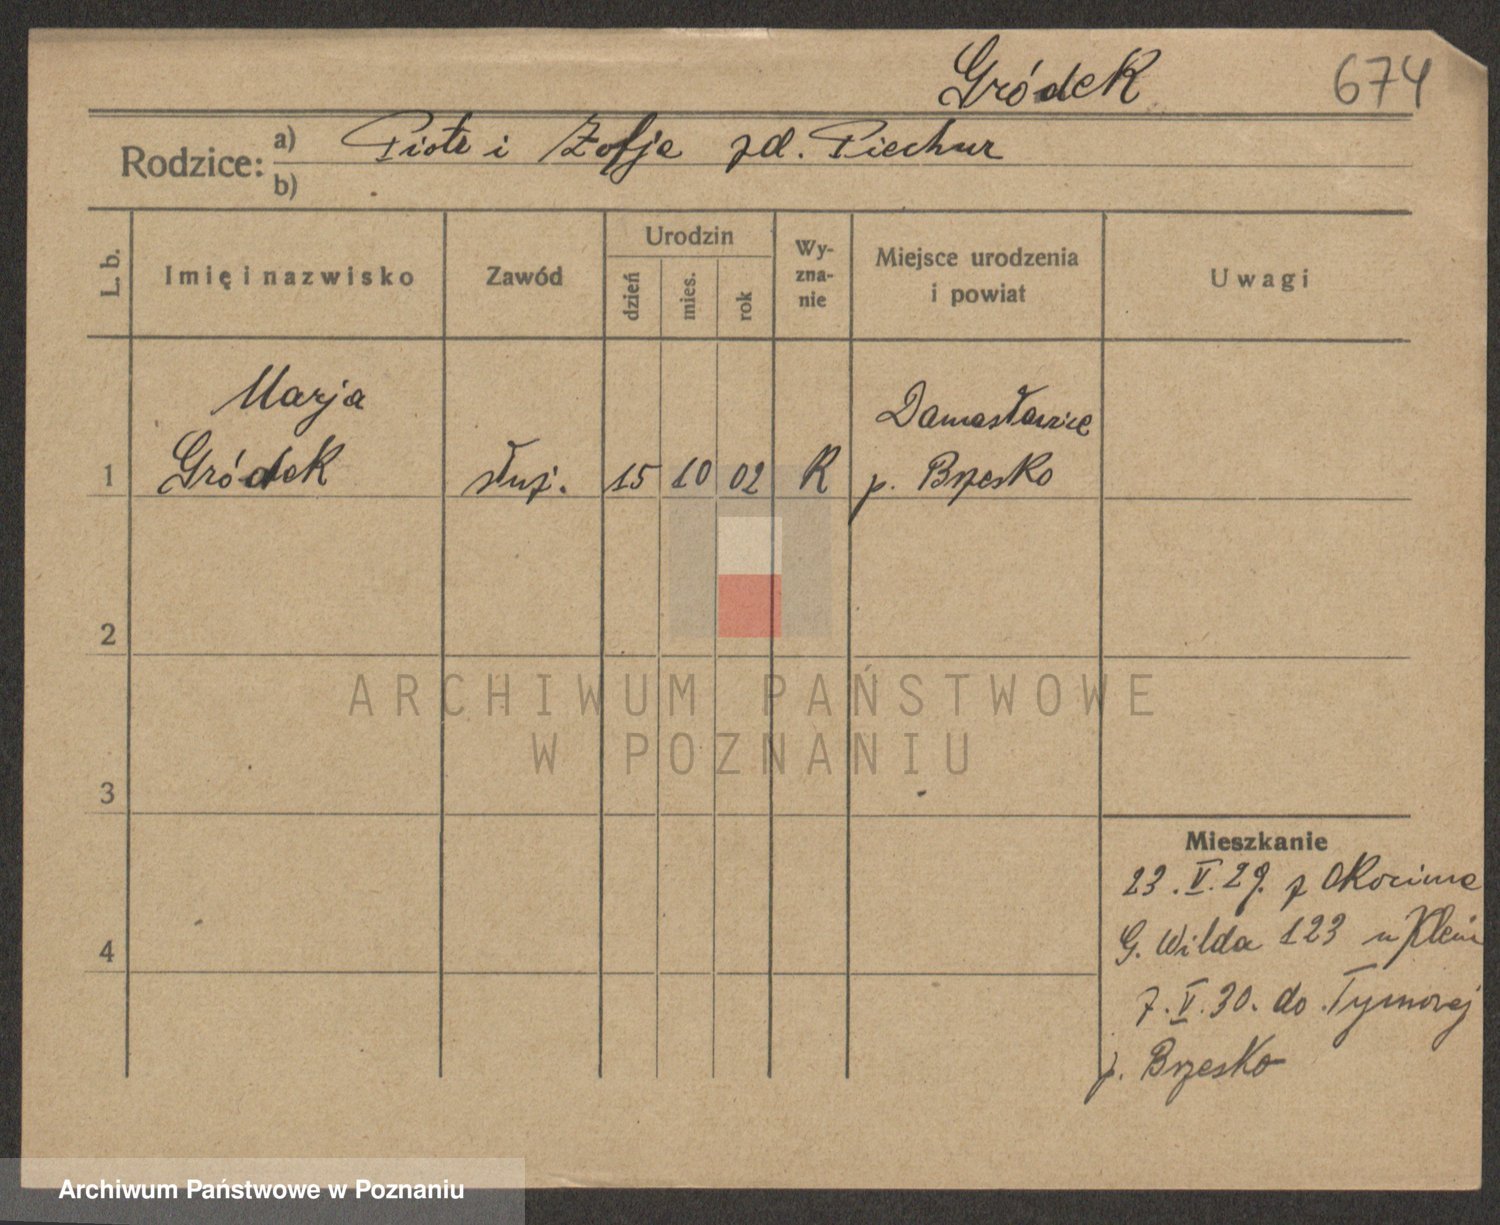 Gródek 674
Rodzice: a) Piotr i Zofja zd. Piechur
b)
L. b.
Imię i nazwisko
Zawód
Urodzin
dzień
mies.
rok
Wy-
zna-
nie
Miejsce urodzenia
i powiat
Uwagi
Marja Damasławice
1 Gródek służ. 15 10 02 R p. Brzesko
2
3
4
Mieszkanie
23. V. 29. z Okocima
G. Wilda 123 u Klein
7. V. 30. do Tymowej
p. Brzesko
ARCHIWUM PAŃSTWOWE
W POZNANIU
Archiwum Państwowe w Poznaniu